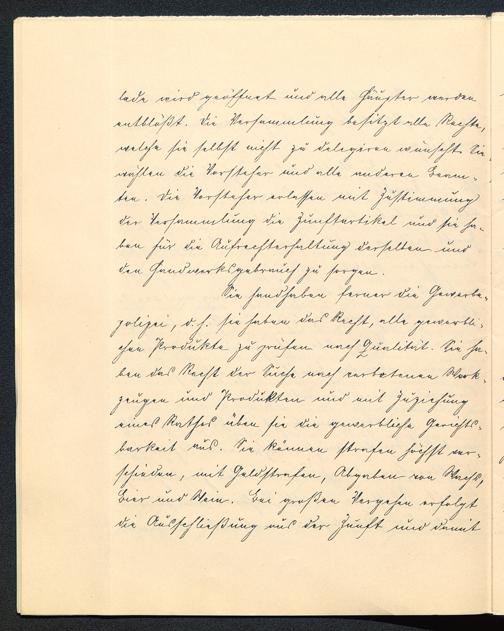 lade wird geöffnet und alle Häupter werden
entblößt. Die Versammlung besitzt alle Rechte,
welche sie selbst nicht zu delegiren wünscht. Sie
wählen die Vorsteher und alle anderen Beam-
ten. Die Vorsteher erlassen mit Zustimmung
der Versammlung die Zunftartikel und sie ha-
ben für die Aufrechterhaltung derselben und
den Handwerksgebrauch zu sorgen.
Sie handhaben ferner die Gewerbe-
polizei, d. h. sie haben das Recht, alle gewerbli-
chen Produkte zu prüfen nach Qualität. Sie ha-
ben das Recht der Suche nach verbotenen Werk-
zeugen und Produkten und mit Zuziehung
eines Rathes üben sie die gewerbliche Gerichts-
barkeit aus. Sie können strafen höchst ver-
schieden, mit Geldstrafen, Abgaben von Wachs,
Bier und Wein. Bei großen Vergehen erfolgt
die Ausschließung aus der Zunft und damit